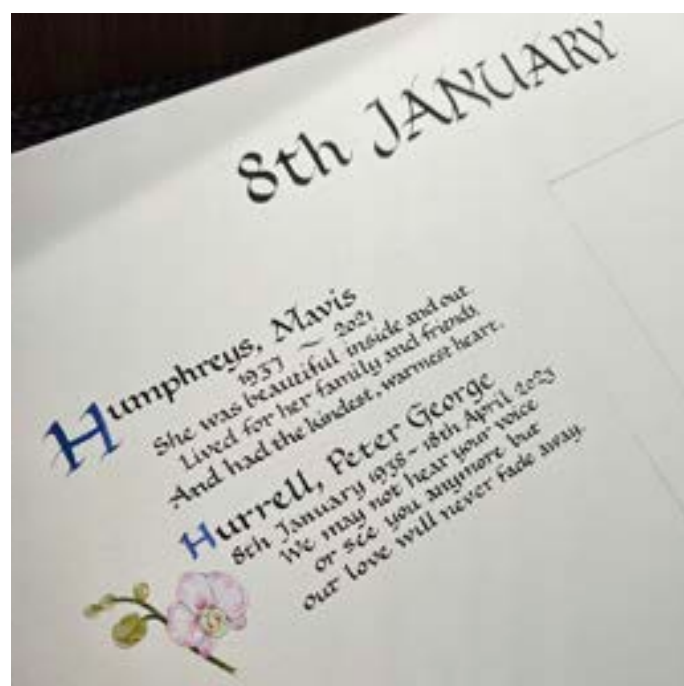 8th JANUARY
Humphreys, Mavis
1937 ~ 2021
She was beautiful inside and out.
Lived for her family and friends,
And had the kindest, warmest heart.
Hurrell, Peter George
8th January 1938 ~ 18th April 2023
We may not hear your voice
or see you anymore but
our love will never fade away.